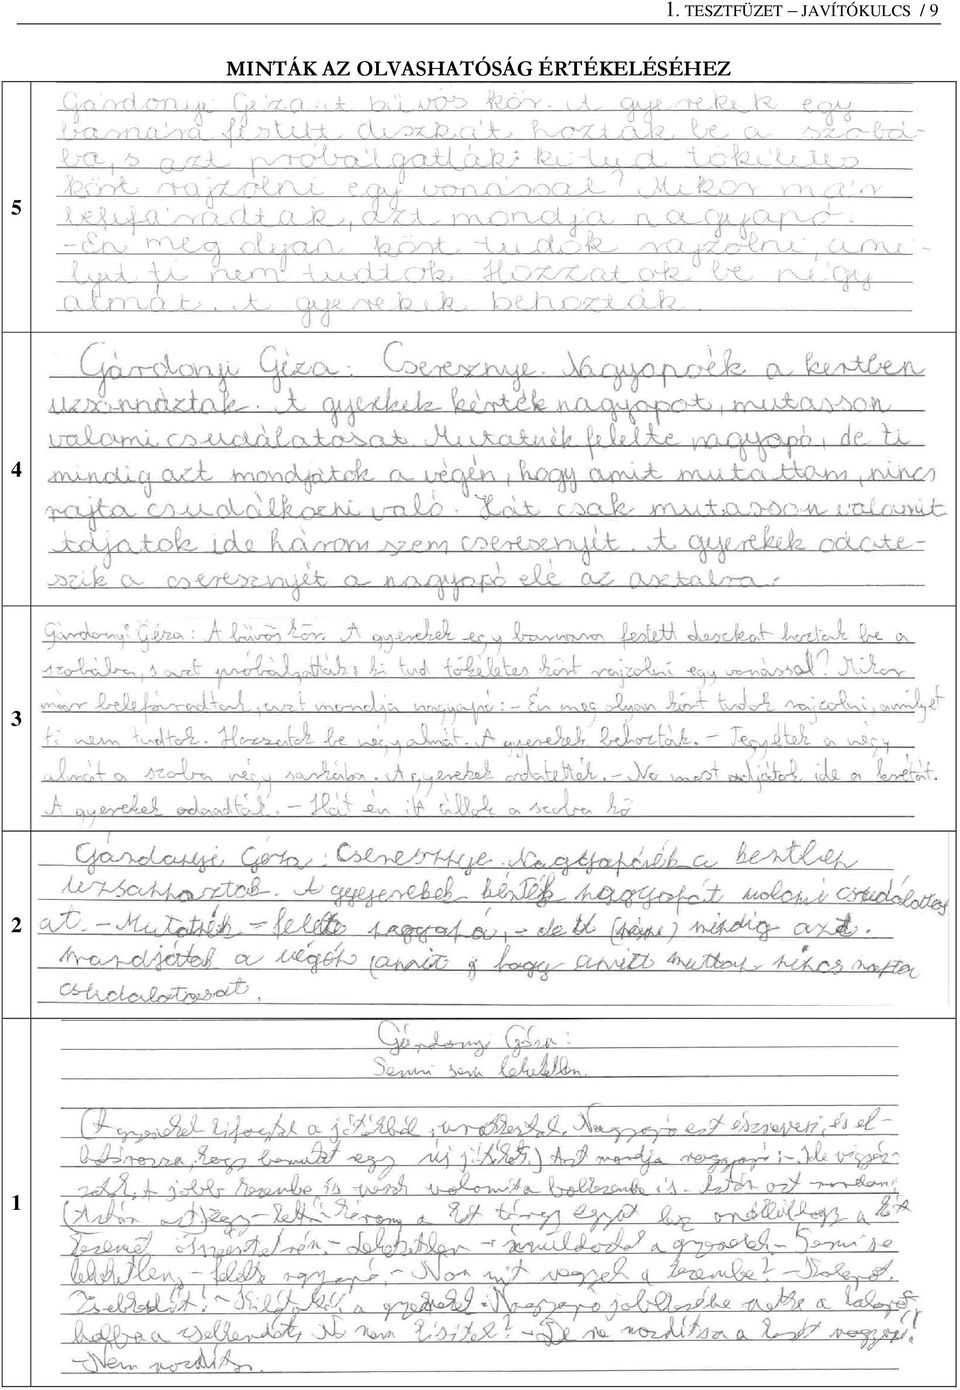 1. TESZTFÜZET – JAVÍTÓKULCS / 9
MINTÁK AZ OLVASHATÓSÁG ÉRTÉKELÉSÉHEZ
5
Gárdonyi Géza: A bűvös kör. A gyerekek egy
barnára festett deszkát hoztak be a szobá-
ba, s azt próbálgatták: ki tud tökéletes
kört rajzolni egy vonással? Mikor már
belefáradtak, azt mondja nagyapó:
-Én meg olyan kört tudok rajzolni, ami-
lyet ti nem tudtok. Hozzatok be négy
almát. A gyerekek behozták.
4
Gárdonyi Géza: Cseresznye. Nagyapóék a kertben
uzsonnáztak. A gyerekek kérték nagyapot, mutasson
valami csudálatosat. Mutatnék felelte nagyapó, de ti
mindig azt mondjátok a végén, hogy amit mutattam, nincs
rajta csudálkozni való. Hát csak mutasson valamit
adjatok ide három szem cseresznyét. A gyerekek odate-
szik a cseresznyét a nagyapó elé az asztalra.
3
Gárdonyi Géza: A bűvös kör. A gyerekek egy barnára festett deszkát hoztak be a
szobába, s azt próbálgatták: ki tud tökéletes kört rajzolni egy vonással? Mikor
már belefáradtak, azt mondja nagyapó: - Én meg olyan kört tudok rajzolni, amilyet
ti nem tudtok. Hozzatok be négy almát. A gyerekek behozták. - Tegyétek a négy
almát a szoba négy sarkába. A gyerekek odatették. - No most adjátok ide a krétát.
A gyerekek odaadták. - Hát én itt állok a szoba kö
2
Gárdonyi Géza: Cseresznye. Nagyapóék a kertben
uzsonnaztak. A gyejerekek kérték nagyapót valami csudálatos
at. - Mutatnék - felelte nagyapó, - de ti mindig azt
mondjátok a végén hogy amit nincs rajta
csudalatosat.
1
Gárdonyi Géza:
Semmi sem lehetetlen.
A gyerekek kifogytak a játékból, unatkoztak. Nagyapó ezt észreveszi, és el-
határozza, hogy bemutat egy új játékot.) Azt mondja nagyapó: - Ide vigyáz-
zatok. A jobb kezembe is veszek valamit a balkezembe is. Aztán azt mondom:
(Aztán azt) egy - kettő - három a két tárgy együtt lesz anélkül hogy a két
kezemet összeérintném. - Lehetetlen - a gyerekek - Semmi se
lehetetlen, - felelte nagyapó, - Non mit vegyek a kezembe? - Kalapot.
Zsebkendőt! - a gyerekek. Nagyapó jobbkezébe vette a kalapot
balba a zsebkendőt. No nem - De ne mozdítsa a kezét nagyapó!
- Nem mozdítom.